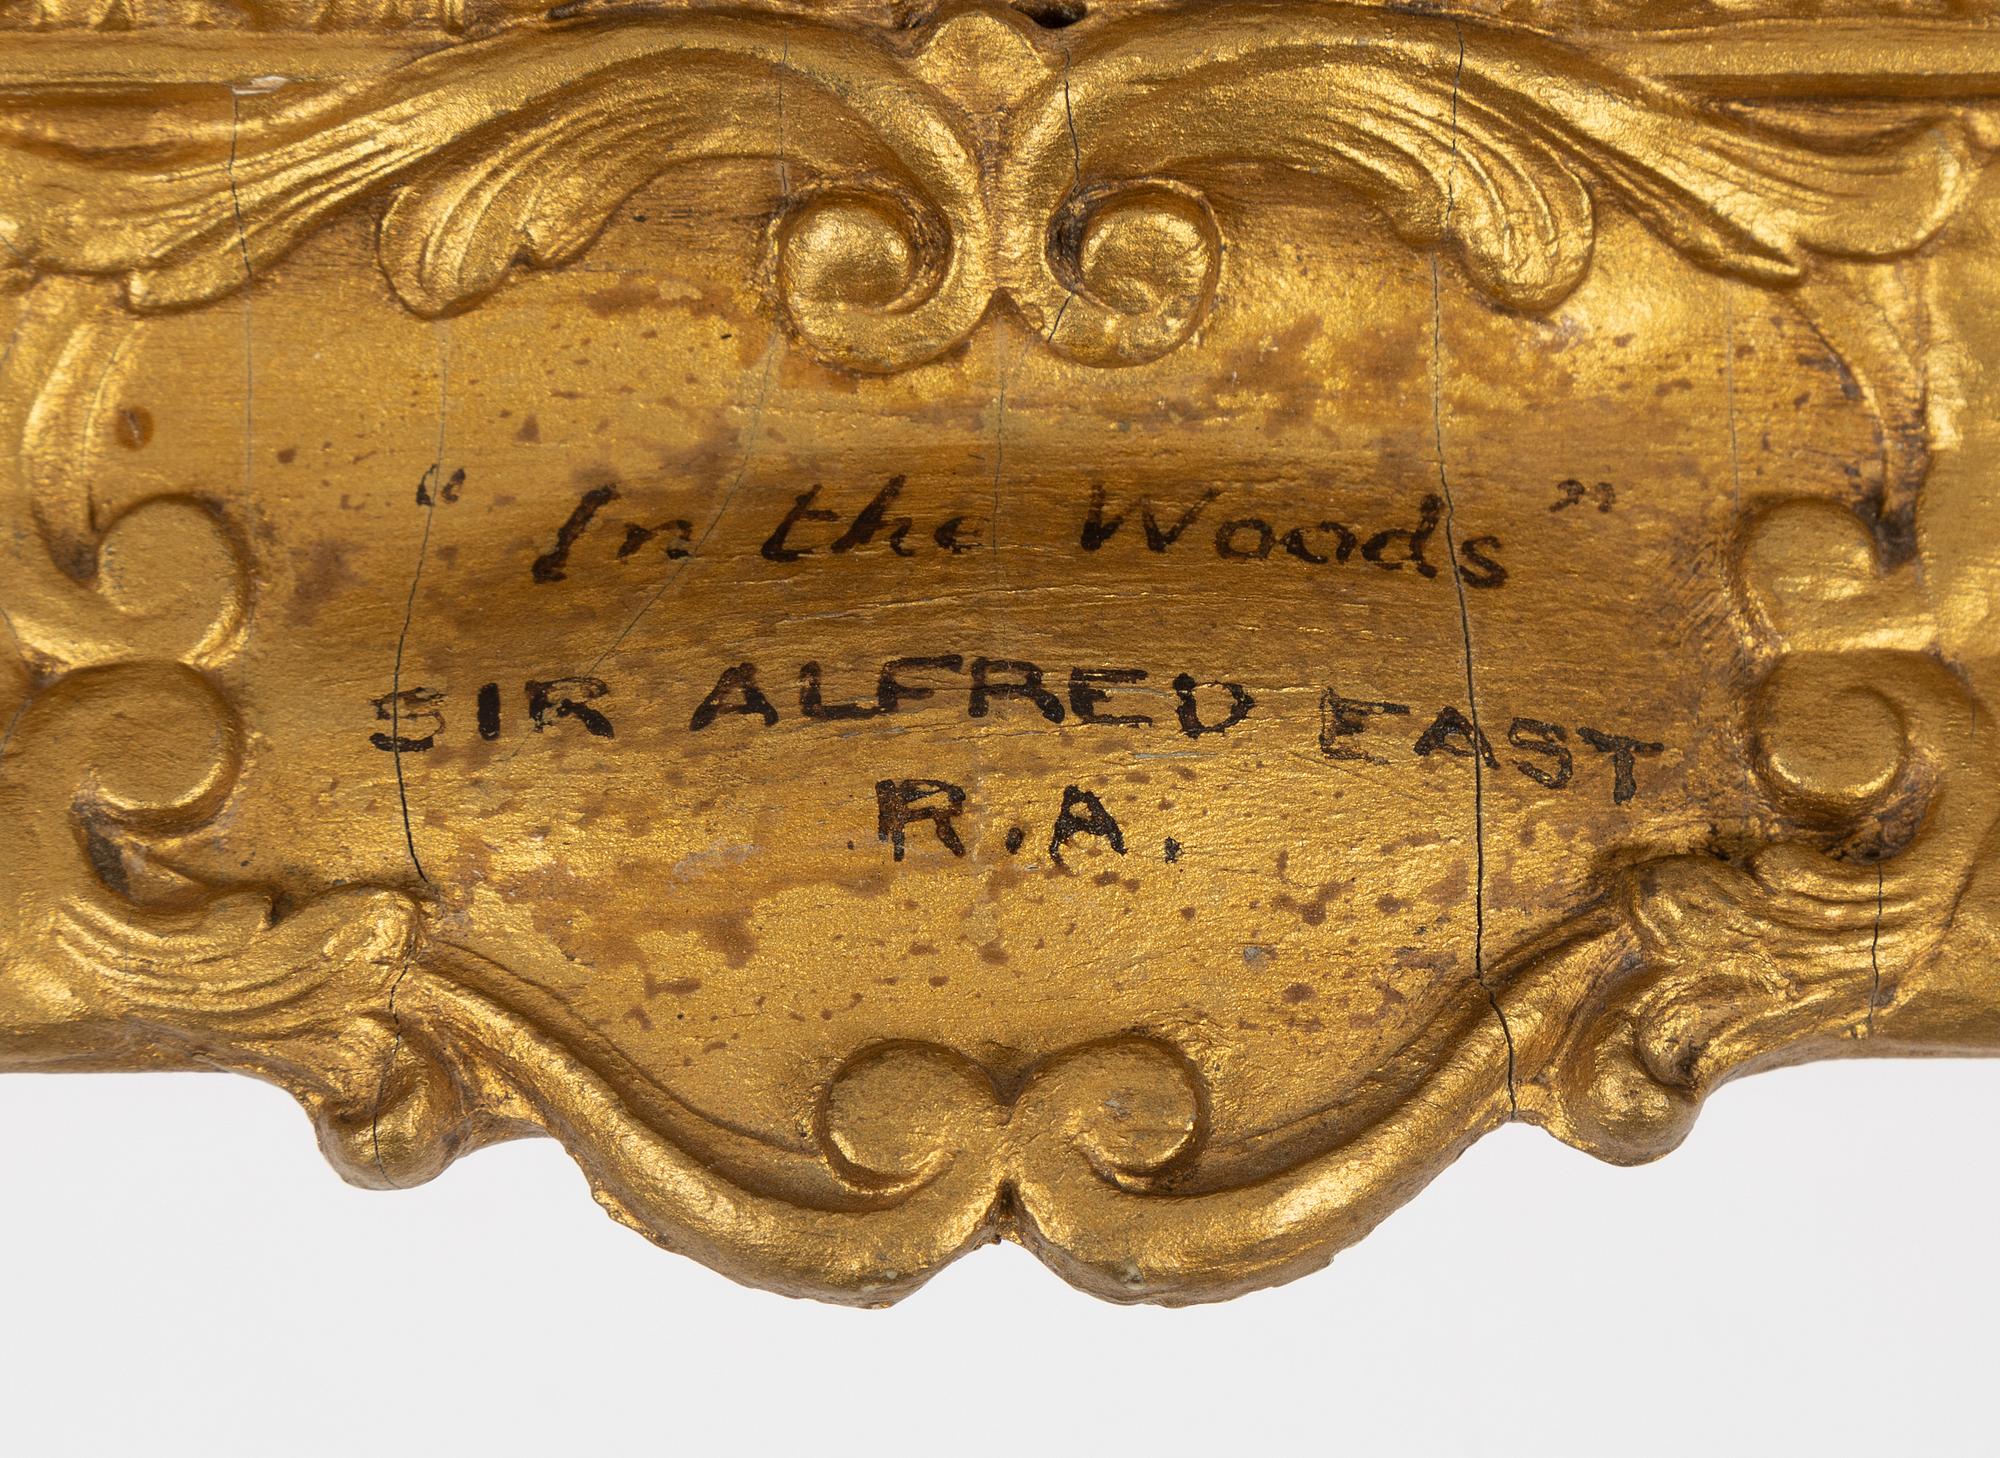 "In the Woods"
SIR ALFRED EAST
R.A.